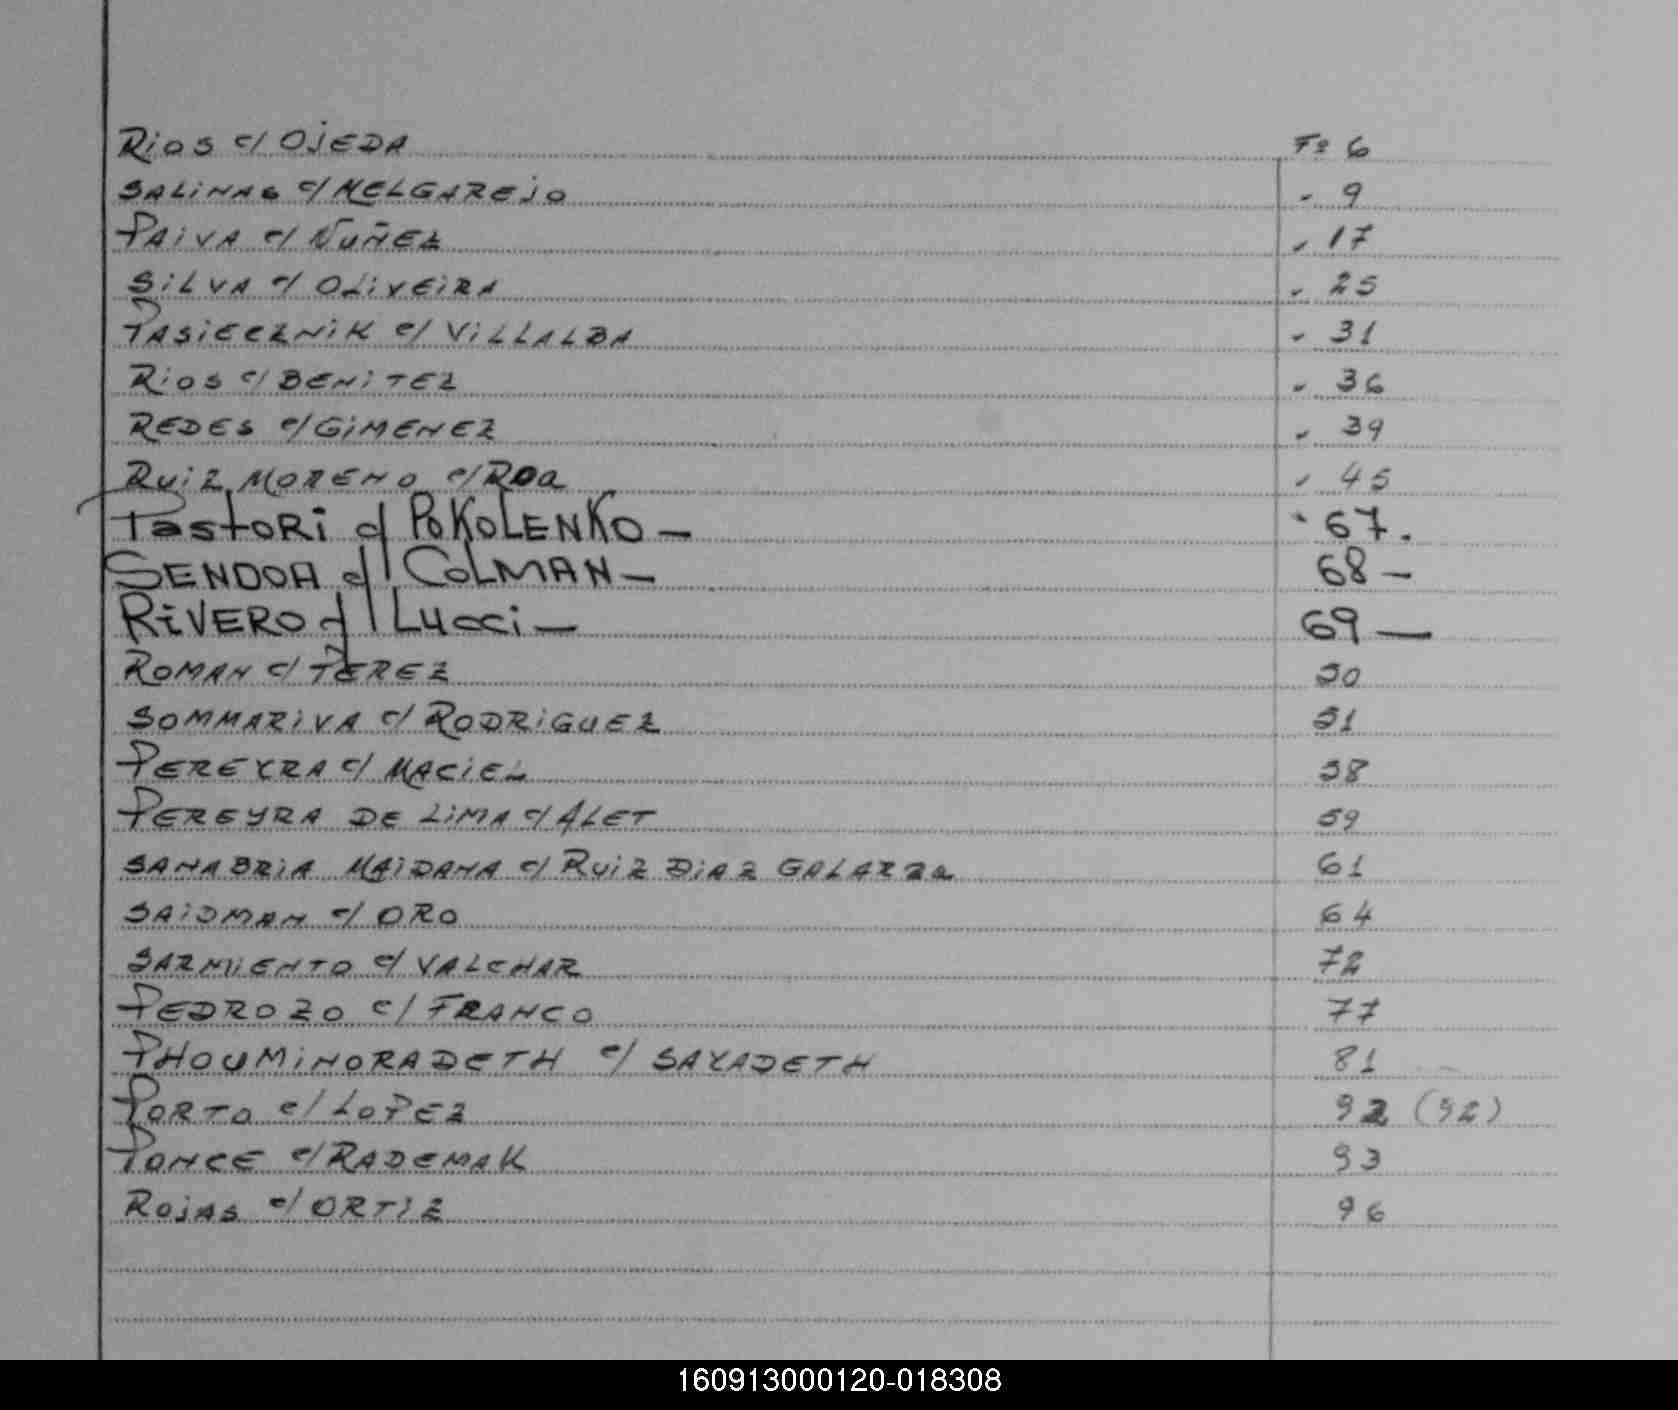 Rios c/ OJEDA Fº 6
SALINAS c/ MELGAREJO " 9
PAIVA c/ NUÑEZ " 17
SILVA c/ OLIVEIRA " 25
PASIECZNIK c/ VILLALBA " 31
RIOS c/ BENITEZ " 36
REDES c/ GIMENEZ " 39
RUIZ MORENO c/ ROA " 45
PastoRi c/ POKOLENKO - " 67.
SENDOA c/ COLMAN - 68 -
RIVERO c/ LUCCI - 69 -
ROMAN c/ PEREZ 50
SOMMARIVA c/ RODRIGUEZ 51
PEREYRA c/ MACIEL 58
PEREYRA DE LIMA c/ ALET 59
SANABRIA MAIDANA c/ RUIZ DIAZ GALARZA 61
SAIDMAN c/ ORO 64
SARMIENTO c/ VALCHAR 72
PEDROZO c/ FRANCO 77
PHOUMINORADETH c/ SAYADETH 81
PORTO c/ LOPEZ 92 (92)
PONCE c/ RADEMAK 93
ROJAS c/ ORTIZ 96
160913000120-018308